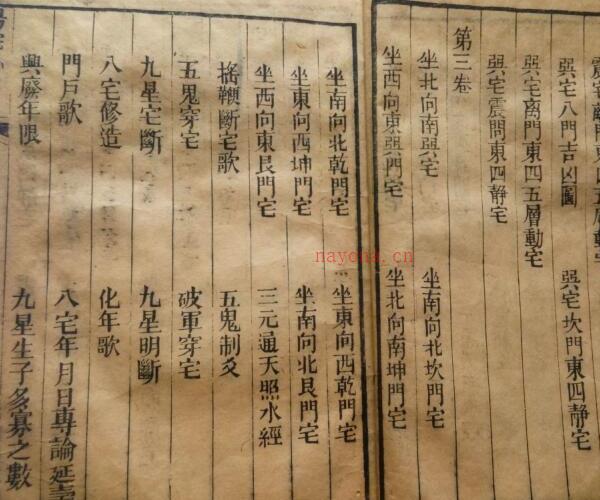 震宅離門東四五層動宅
巽宅八門吉凶圖 巽宅坎門東四靜宅
巽宅离門東四五層動宅
巽宅震問東四靜宅
第三卷
坐北向南巽宅 坐南向北坎門宅
坐西向東巽門宅 坐北向南坤門宅
坐南向北乾門宅 坐東向西乾門宅
坐東向西坤門宅 坐南向北艮門宅
坐西向東艮門宅 三元通天照水經
搖鞭斷宅歌 五鬼制爻
五鬼穿宅 破軍穿宅
九星宅斷 九星明斷
八宅修造 化年歌
門戶歌 八宅年月日專論延壽
興廢年限 九星生子多寡之數
nayona.cn